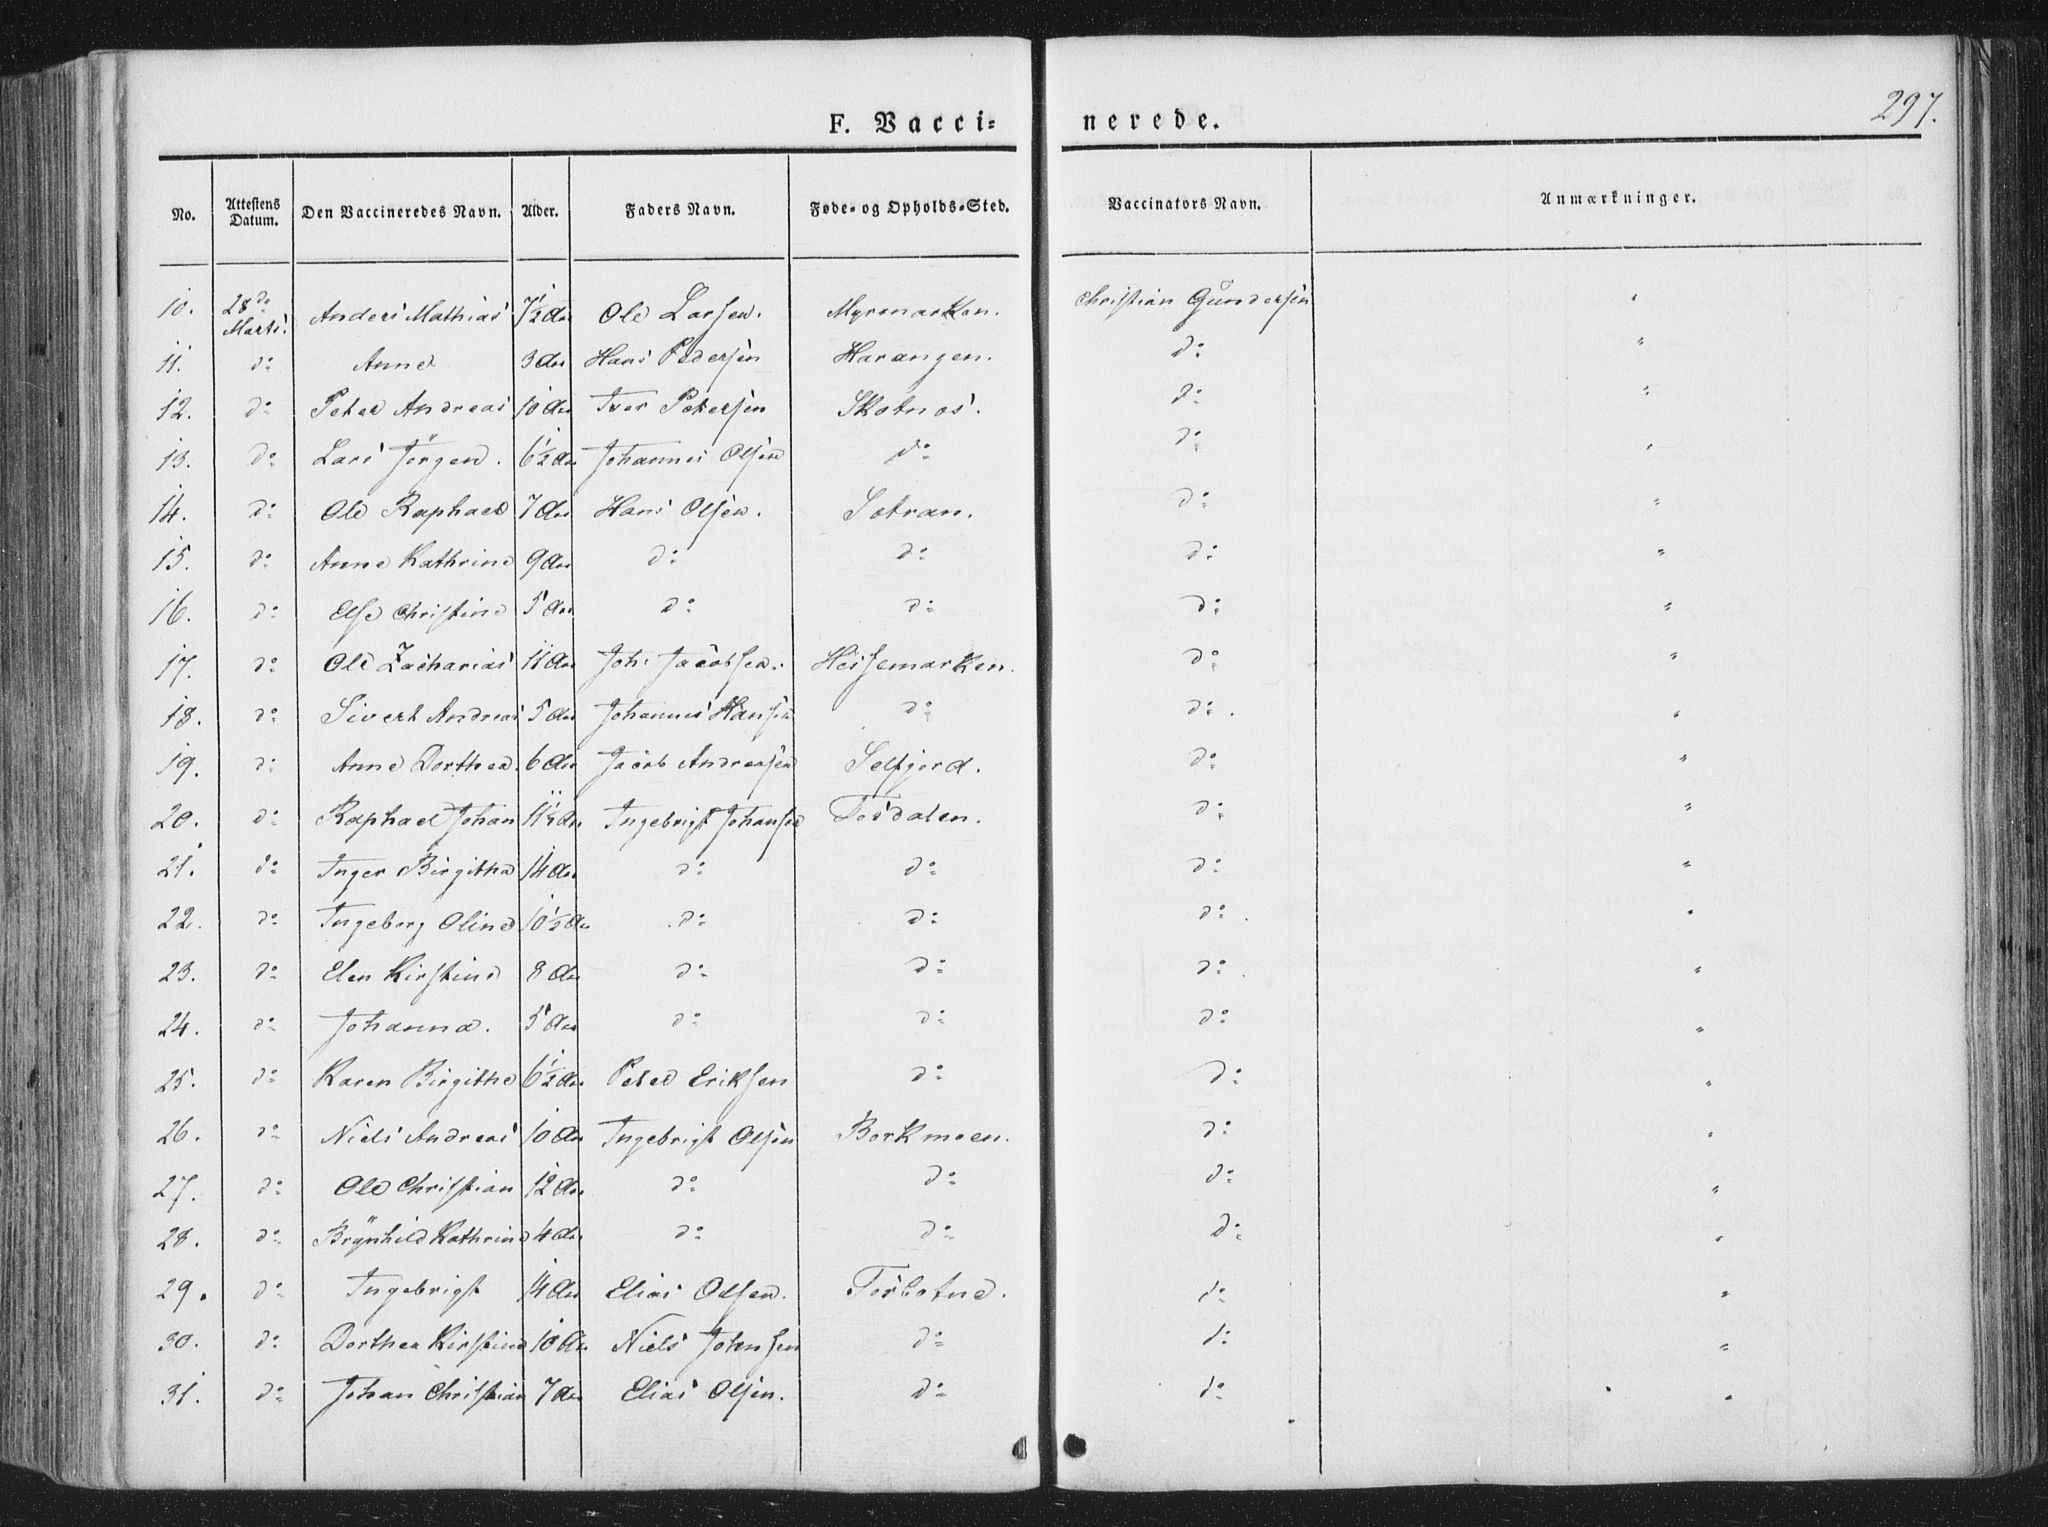 297.
F. Vacci- nerede.
No. Attestens Datum. Den Vaccineredes Navn. Alder. Faders Navn. Føde- og Opholds-Sted. Vaccinators Navn. Anmærkninger.
10. 28de Marts. Anders Mathias 7½ Aar Ole Larsen. Myrmarken. Christian Gundersen "
11. do Anne 3 Aar Hans Pedersen Harangen. do "
12. do Peter Andreas 10 Aar Iver Petersen Skotnes. do "
13. do Lars Jörgen. 6½ Aar Johannes Olsen do do "
14. do Ole Raphael 7 Aar Hans Olsen. Sotran. do "
15. do Anne Kathrine 9 Aar do do do "
16. do Else Christine 5 Aar do do do "
17. do Ole Zacharias 11 Aar Joh: Jacobsen. Heissemarken. do "
18. do Sivert Andreas 5 Aar Johannes Hansen do do. "
19. do Anne Dorthea. 6 Aar Jacob Andreasen Selfjord. do "
20. do Raphael Johan 11½ Aar Ingebrigt Johansen Tosdalen. do "
21. do Inger Birgitha 14 Aar do do do "
22. do Ingeborg Oline 10½ Aar do do do. "
23. do Elen Kirstine 8 Aar do do do. "
24. do Johanna. 5 Aar do do do "
25. do Karen Birgithe 6½ Aar Peter Eriksen do do "
26. do Niels Andreas 10 Aar Ingebrigt Olsen Borkmoen. do "
27. do Ole Christian 12 Aar do do do "
28. do Brÿnhild Kathrine 4 Aar do do do "
29. do Ingebrigt 14 Aar Elias Olsen. Torbotne. do "
30. do Dorthea Kirstine 10 Aar Niels Johnsen do do "
31. do Johan Christian 7 Aar Elias Olsen. do do "